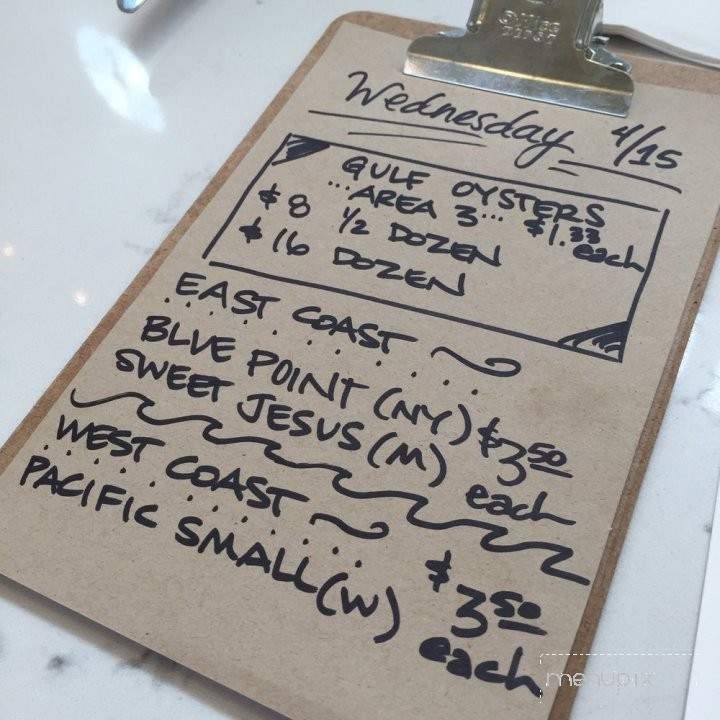 Wednesday 4/15
GULF OYSTERS
...AREA 3... $1.33 each
$8 1/2 DOZEN
$16 DOZEN
EAST COAST
BLUE POINT (NY) $3.50
SWEET JESUS (M) each
WEST COAST
PACIFIC SMALL (W) $3.50 each
menupix